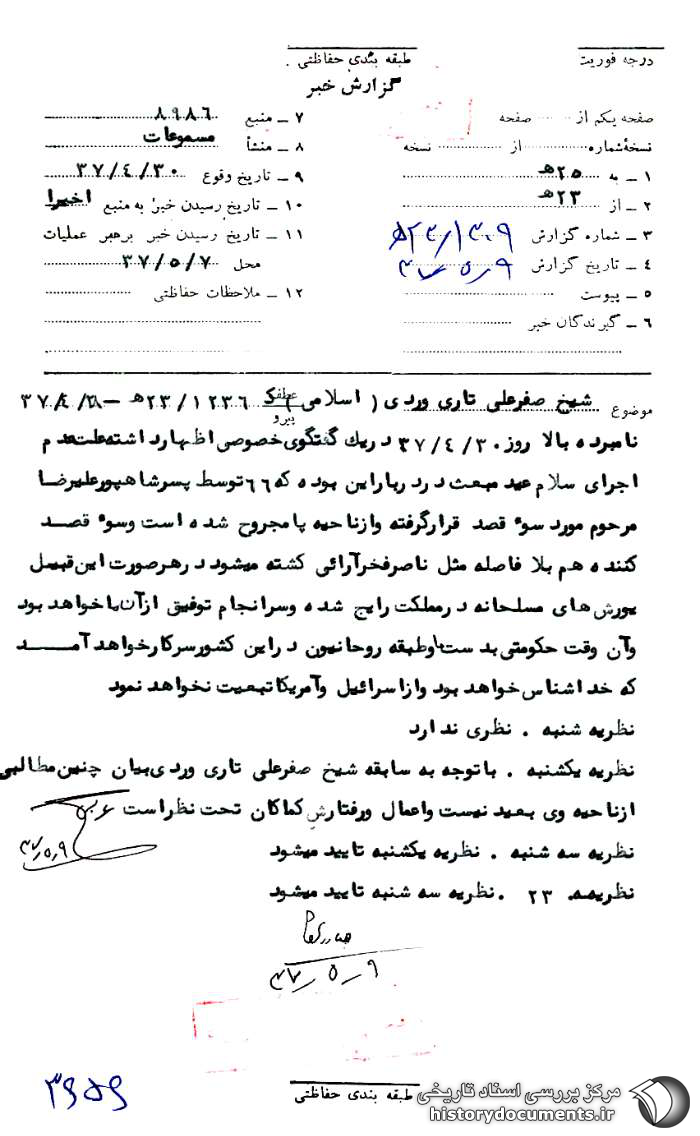 درجه فوریت
طبقه بندی حفاظتی
گزارش خبر
صفحه یکم از ........ صفحه
نسخهٔ شماره ........ از ........ نسخه
۱ ـ به ۲۵هـ
۲ ـ از ۲۳هـ
۳ ـ شماره گزارش
۴ ـ تاریخ گزارش ۳۷/۵/۹
۵ ـ پیوست
۶ ـ گیرندگان خبر
۷ ـ منبع ۸۹۸۶
۸ ـ منشأ مسموعات
۹ ـ تاریخ وقوع ۳۷/۴/۳۰
۱۰ ـ تاریخ رسیدن خبر به منبع اخیرا
۱۱ ـ تاریخ رسیدن خبر برهبر عملیات
محل ۳۷/۵/۷
۱۲ ـ ملاحظات حفاظتی
موضوع شیخ صفرعلی تاری وردی (اسلامی) عطف پیرو ۲۳/۱۲۳۶هـ
نامبرده بالا روز ۳۷/۴/۳۰ در یك گفتگوی خصوصی اظهار داشته علت عدم
اجرای سلام عید مبعث در دربار این بوده که ۶۶ توسط پسر شاهپور علیرضا
مرحوم مورد سوء قصد قرار گرفته و از ناحیه پا مجروح شده است و سوء قصد
کننده هم بلا فاصله مثل ناصر فخرآرائی کشته میشود در هر صورت این قبیل
یورش های مسلحانه در مملکت رایج شده و سرانجام توفیق از آن ما خواهد بود
و آن وقت حکومتی بدست ما و طبقه روحانیون در این کشور سرکار خواهد آمـــد
که خدا شناس خواهد بود و از اسرائیل و آمریکا تبعیت نخواهد نمود
نظریه شنبه . نظری ندارد
نظریه یکشنبه . با توجه به سابقه شیخ صفرعلی تاری وردی بیان چنین مطالبی
از ناحیه وی بعید نیست و اعمال و رفتارش کماکان تحت نظر است
۳۷/۵/۹
نظریه سه شنبه . نظریه یکشنبه تایید میشود
نظریه ۲۳ . نظریه سه شنبه تایید میشود
۳۷/۵/۹
طبقه بندی حفاظتی
مرکز بررسی اسناد تاریخی
historydocuments.ir